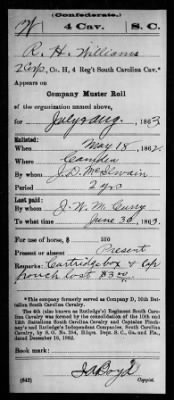 (Confederate.)
W 4 Cav. S. C.
R. H. Williams
2 Corp, Co. H, 4 Reg't South Carolina Cav.*
Appears on
Company Muster Roll
of the organization named above,
for July & Aug, 1863
Enlisted:
When May 18, 1862
Where Camden
By whom J. D. McIlwain
Period 2 yrs
Last paid:
By whom J. W. McCurry
To what time June 30, 1863.
For use of horse, $ 100
Present or absent Present
Remarks: Cartridge box & Cap
pouch lost $3.00
*This company formerly served as Company D, 10th Battalion South Carolina Cavalry.
The 4th (also known as Rutledge's) Regiment South Carolina Cavalry was formed by the consolidation of the 10th and 12th Battalions South Carolina Cavalry and Captains Pinckney's and Rutledge's Independent Companies, South Carolina Cavalry, by S. O. No. 254, Hdqrs. Dept. S. C., Ga. and Fla., dated December 16, 1862.
Book mark:
(642) Copyist.